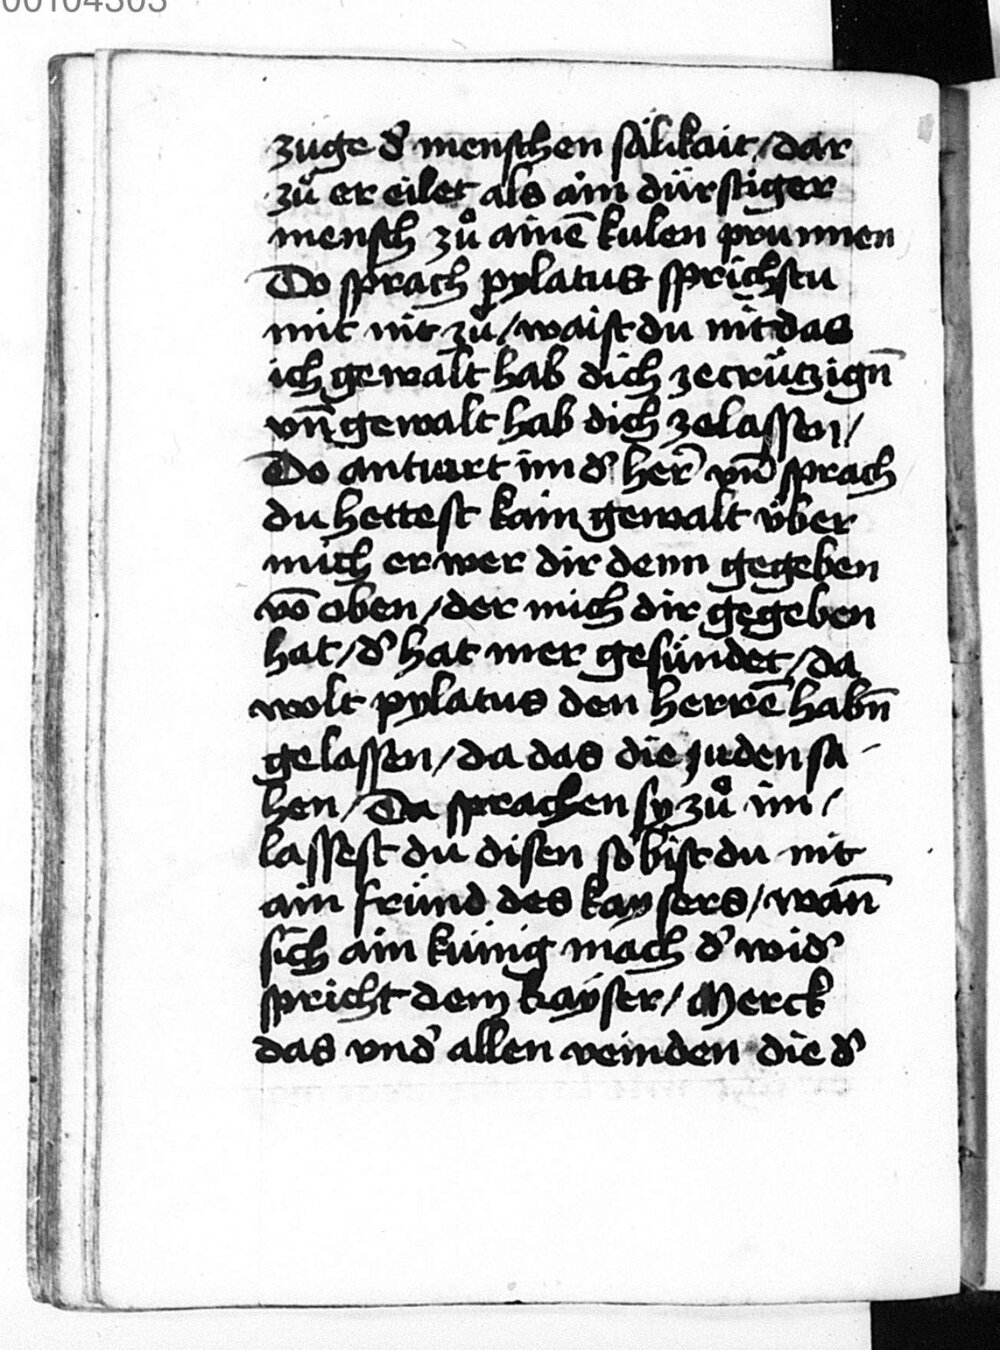 00104303
zuge d᷎ menschen sälikait / dar
zuͦ er eilet als ain dürstiger
mensch zuͦ ainē kulen prunnen
Do sprach pylatus sprichstu
mir nit zuͦ / waist du nit das
ich gewalt hab dich zecrützign̄
vn̄ gewalt hab dich zelassen /
Do antwurt im d᷎ her᷎ vn̄ sprach
du hettest kain gewalt über
mich er wer dir denn gegeben
vō oben / der mich dir gegeben
hat / d᷎ hat mer gesündet / da
wolt pylatus den herrē habn̄
gelassen / da das die juden sa-
hen / Da sprachen sy zuͦ im /
lassest du disen so bist du nit
ain fründ des kaysers / wan̄
sich ain künig mach d᷎ wid᷎
spricht dem kayser / Merck
das vnd᷎ allen veinden die d᷎